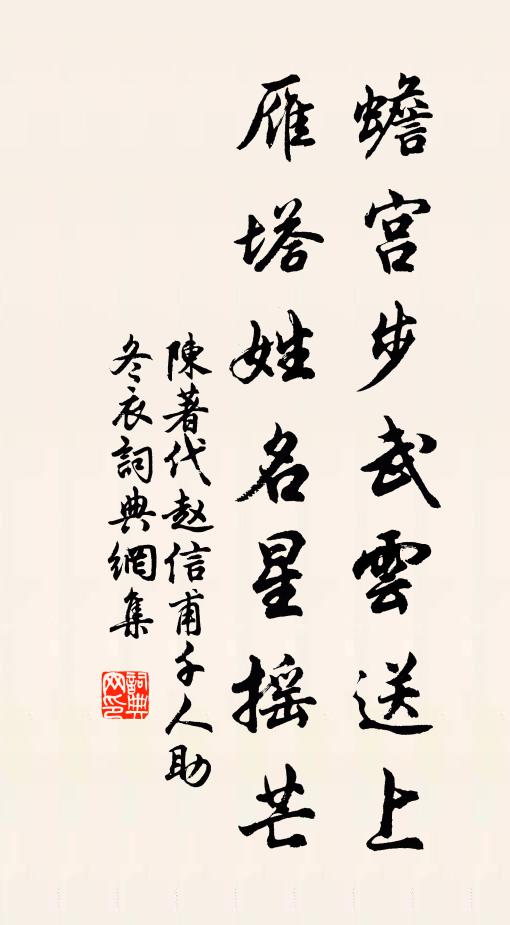 蟾宮步武雲送上
雁塔姓名星摇芒
陳著代赵信甫千人助
冬衣詞典網集
詞典网印